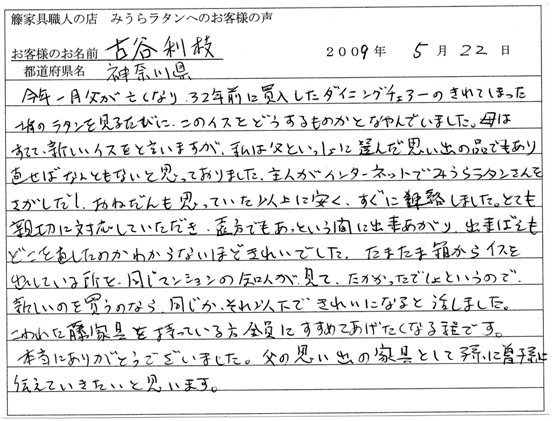 籐家具職人の店 みうらラタンへのお客様の声
お客様のお名前 古谷利枝 2009年 5月 22日
都道府県名 神奈川県
今年一月父が亡くなり、32年前に買入したダイニングチェアーのきれてしまった
椅のラタンを見るたびに、このイスをどうするものかとなやんでいました。母は
すてて、新しいイスをと言いますが、私は父といっしょに選んだ思い出の品でもあり
直せばなんともないと思っておりました。主人がインターネットでみうらラタンさんを
さがしだし、おねだんも思っていた以上に安く、すぐに連絡しました。とても
親切に対応していただき、直方でもあっという間に出来あがり、出来ばえも
どこを直したのかわからないほどきれいでした。たまたま箱からイスを
出している所を、同じマンションの知人が見て、たかかったでしょというので、
新しいのを買うのなら、同じか、それ以下できれいになると話しました。
こわれた藤家具を持っている方全員にすすめてあげたくなる程です。
本当にありがとうございました。父の思い出の家具として孫に曽孫に
伝えていきたいと思います。